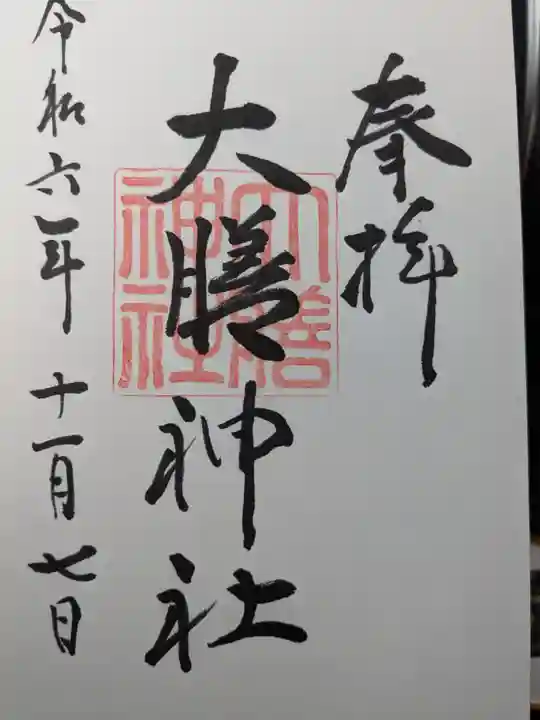 奉拝
大膳神社
大膳
神社
令和六年 十一月 七日